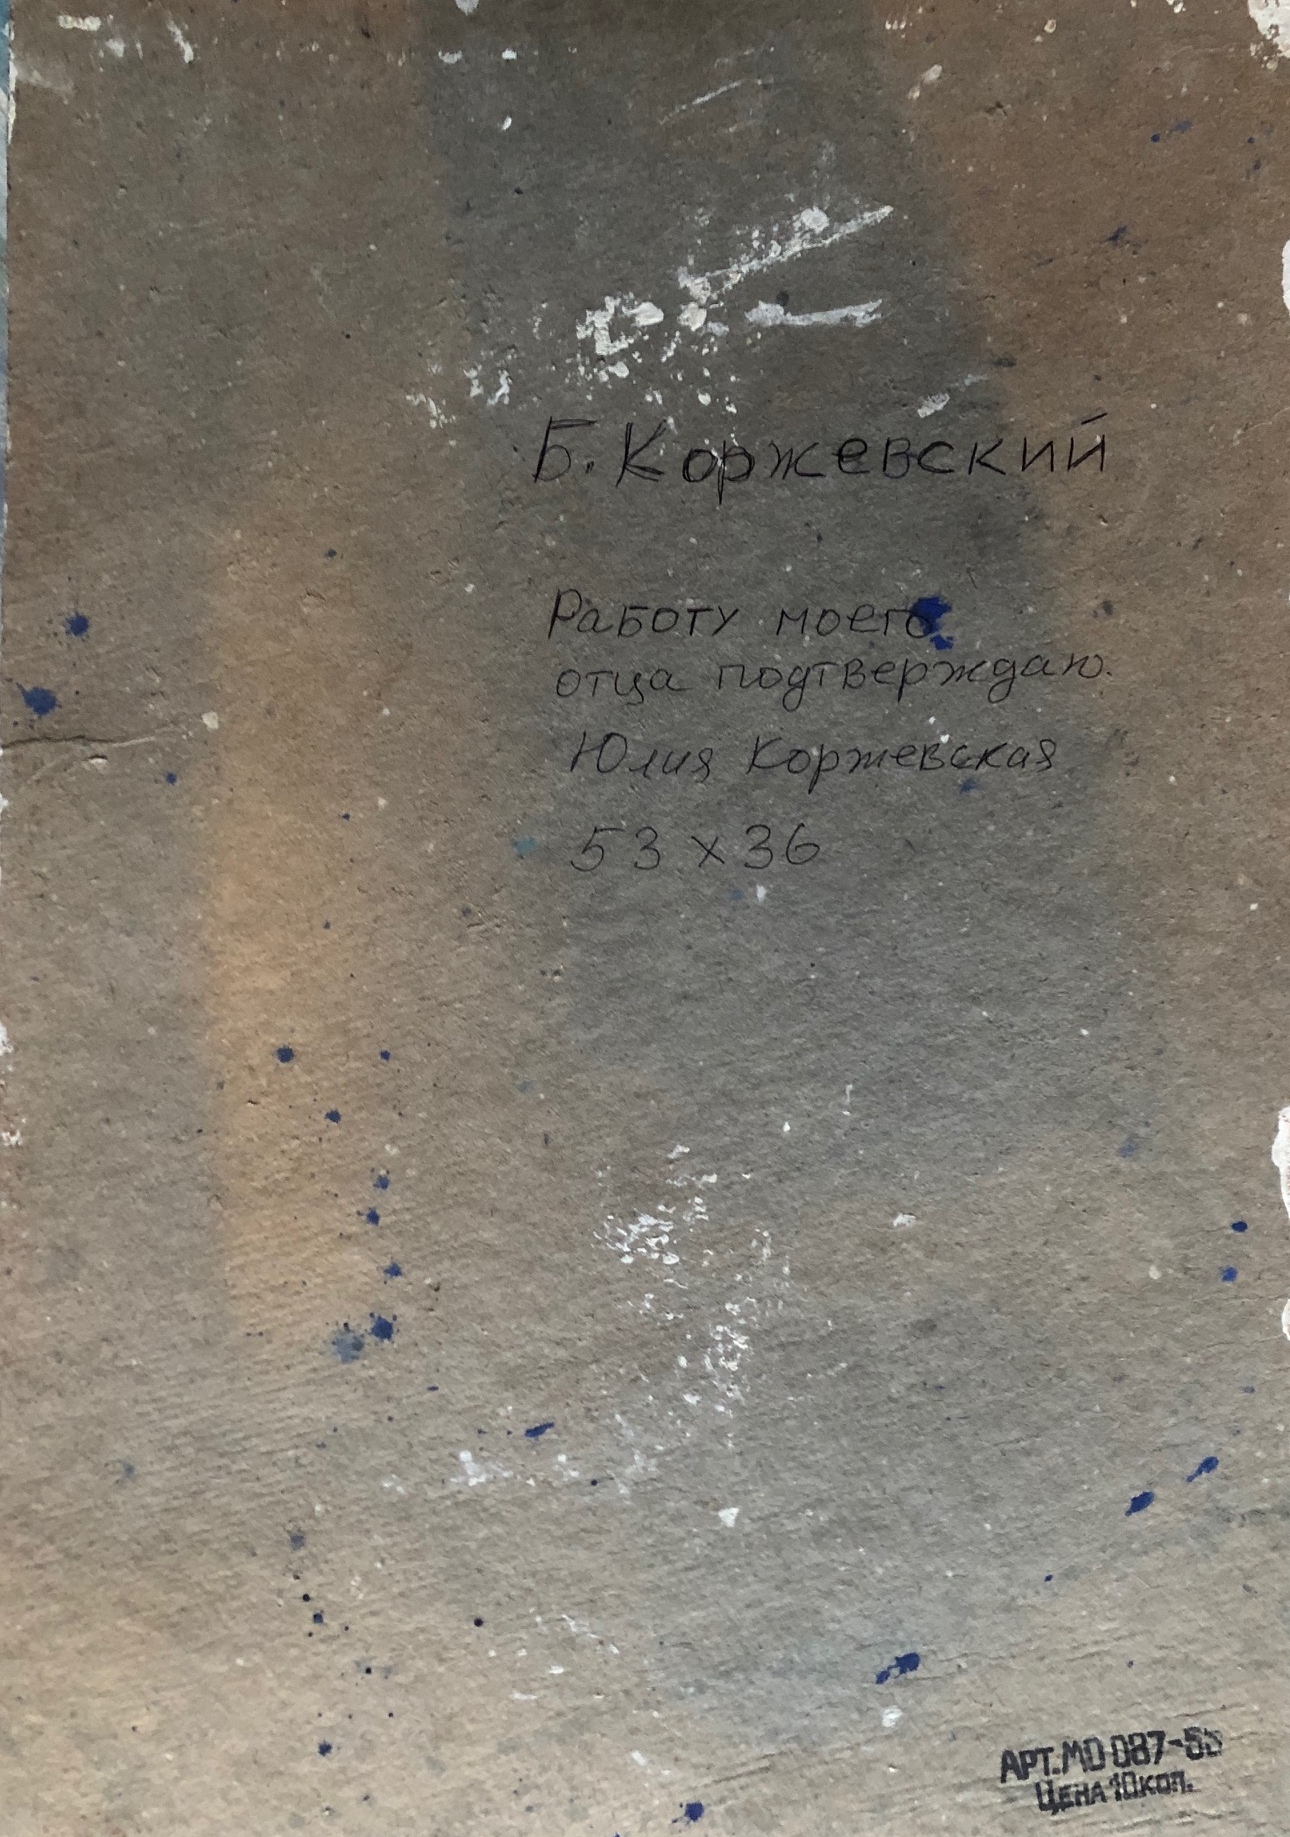 Б. Коржевский
Работу моего
отца подтверждаю.
Юлия Коржевская
53 х 36
АРТ. МО 087-55
ЦЕНА 10 КОП.